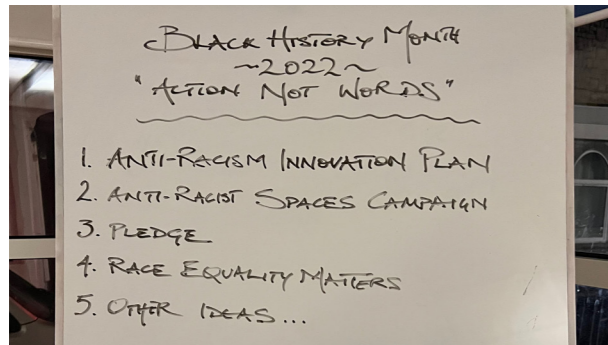 BLACK HISTORY MONTH
~2022~
"ACTION NOT WORDS"
1. ANTI-RACISM INNOVATION PLAN
2. ANTI-RACIST SPACES CAMPAIGN
3. PLEDGE
4. RACE EQUALITY MATTERS
5. OTHER IDEAS...